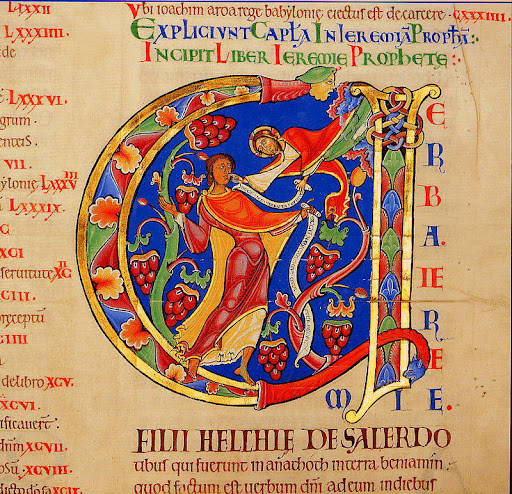 LXXII
LXXXIIII.
LXXXVI.
ngrum
VII.
bylonie LXXXV III
LXXXIX.
XCI
seruitute XC II
delibro XCV.
XCVI.
XCVII
XCVIII
XCIX
Vbi ioachim aroa rege babylonie eiectus est de carcere. CXXXIIII.
EXPLICIVNT CAPLA IN IEREMIĀ PROPHĀM:·
INCIPIT LIBER IEREMIE PROPHETE:·
VERBA.IEREMIE.
FILII HELCHIE DE SACERDO
tibus qui fuerunt in anathoth in terra beniamin;
quod factum est uerbum dñi ad eum in diebus